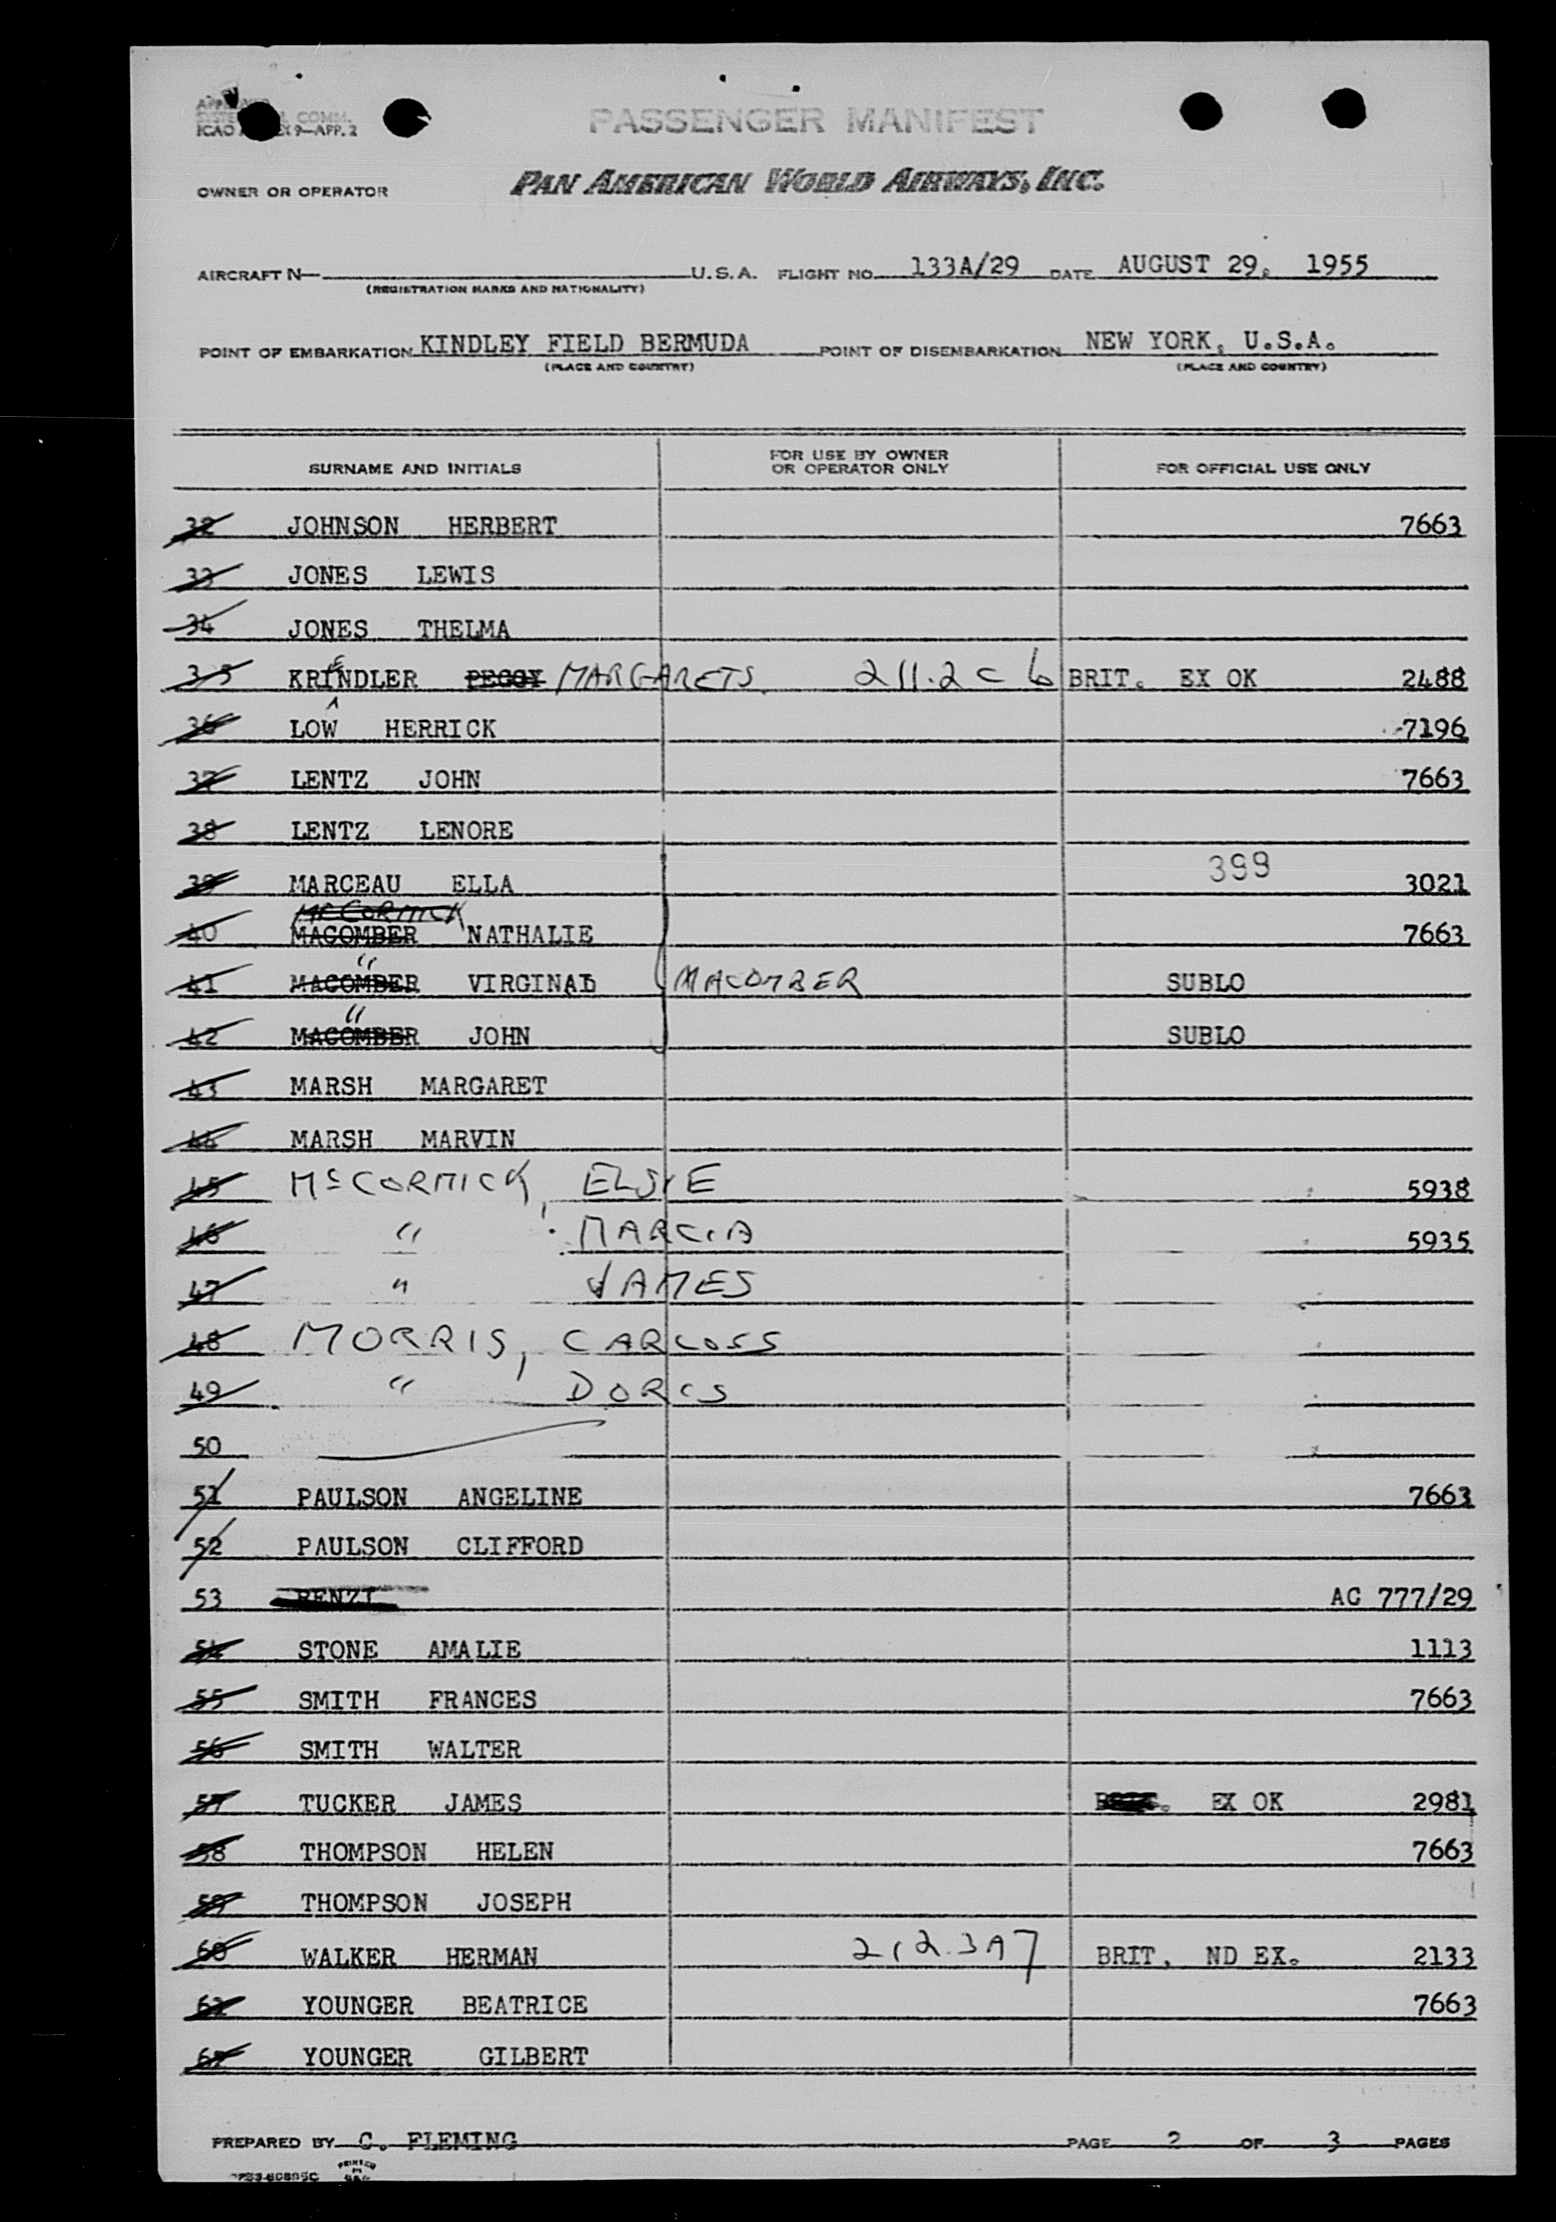 PASSENGER MANIFEST
ICAO 9—APP. 2
OWNER OR OPERATOR PAN AMERICAN WORLD AIRWAYS, INC.
AIRCRAFT N— U.S.A. FLIGHT NO. 133A/29 DATE AUGUST 29, 1955
(REGISTRATION MARKS AND NATIONALITY)
POINT OF EMBARKATION KINDLEY FIELD BERMUDA POINT OF DISEMBARKATION NEW YORK, U.S.A.
(PLACE AND COUNTRY) (PLACE AND COUNTRY)
SURNAME AND INITIALS FOR USE BY OWNER OR OPERATOR ONLY FOR OFFICIAL USE ONLY
32 JOHNSON HERBERT 7663
33 JONES LEWIS
34 JONES THELMA
35 KRIENDLER PEGGY MARGARETS 211.2 C 6 BRIT. EX OK 2488
36 LOW HERRICK 7196
37 LENTZ JOHN 7663
38 LENTZ LENORE
39 MARCEAU ELLA 399 3021
McCORMICK
40 MACOMBER NATHALIE 7663
"
41 MACOMBER VIRGINAL MACOMBER SUBLO
"
42 MACOMBER JOHN SUBLO
43 MARSH MARGARET
44 MARSH MARVIN
45 McCORMICK, ELSIE 5938
46 " MARCIA 5935
47 " JAMES
48 MORRIS, CARLOSS
49 " DORIS
50
51 PAULSON ANGELINE 7663
52 PAULSON CLIFFORD
53 RENZI AC 777/29
54 STONE AMALIE 1113
55 SMITH FRANCES 7663
56 SMITH WALTER
57 TUCKER JAMES EX OK 2981
58 THOMPSON HELEN 7663
59 THOMPSON JOSEPH
60 WALKER HERMAN 212.3A7 BRIT. ND EX. 2133
61 YOUNGER BEATRICE 7663
62 YOUNGER GILBERT
PREPARED BY C. FLEMING PAGE 2 OF 3 PAGES
PRINTED
IN